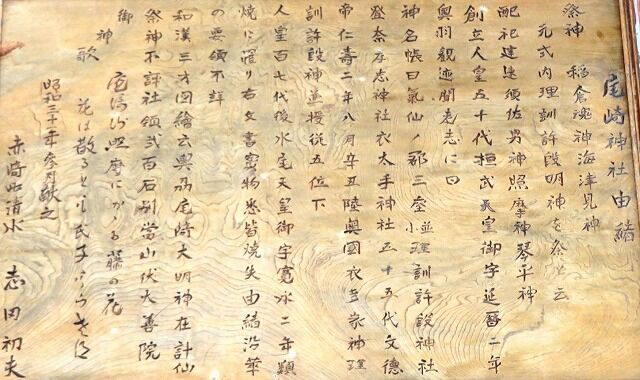 尾崎神社由緒
祭神 稲倉魂神海津見神
元式内理訓許段明神を祭ると云
配祀建速須佐男神照摩神琴平神
創立人皇五十代桓武天皇御宇延暦二年
奥羽観迹聞老志に曰
神名帳曰氣仙ノ郡三座並小理訓許段神社
登奈孝志神社衣太手神社五十五代文徳
帝仁壽二年八月辛丑陸奥國衣多手神理
訓許段神並授従五位下
人皇百七代後水尾天皇御宇寛永二年類
焼に罹り右文書宝物悉皆焼失由緒沿革
の要領不詳
和漢三才図繪云奥州尾崎大明神在計仙
祭神不詳社領弐百石別當山伏大善院
御神歌
尾崎山照摩にかゝる藤の花
花は散るとも氏子ちらさじ
昭和三十年参月献之
赤崎町清水 志田初夫